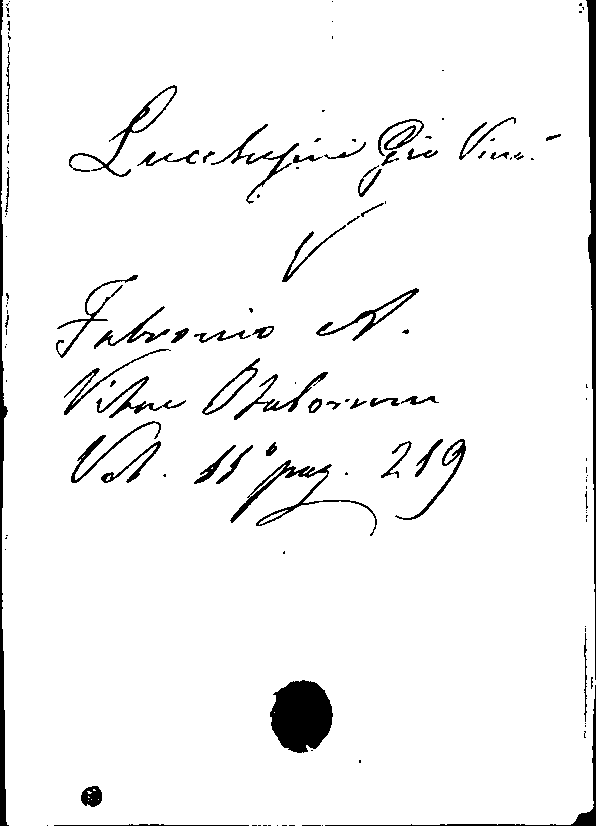 Lucchesini Gio Vinc.
V
Fabronio A.
Vitae Italorum
Vol. 11° pag. 219